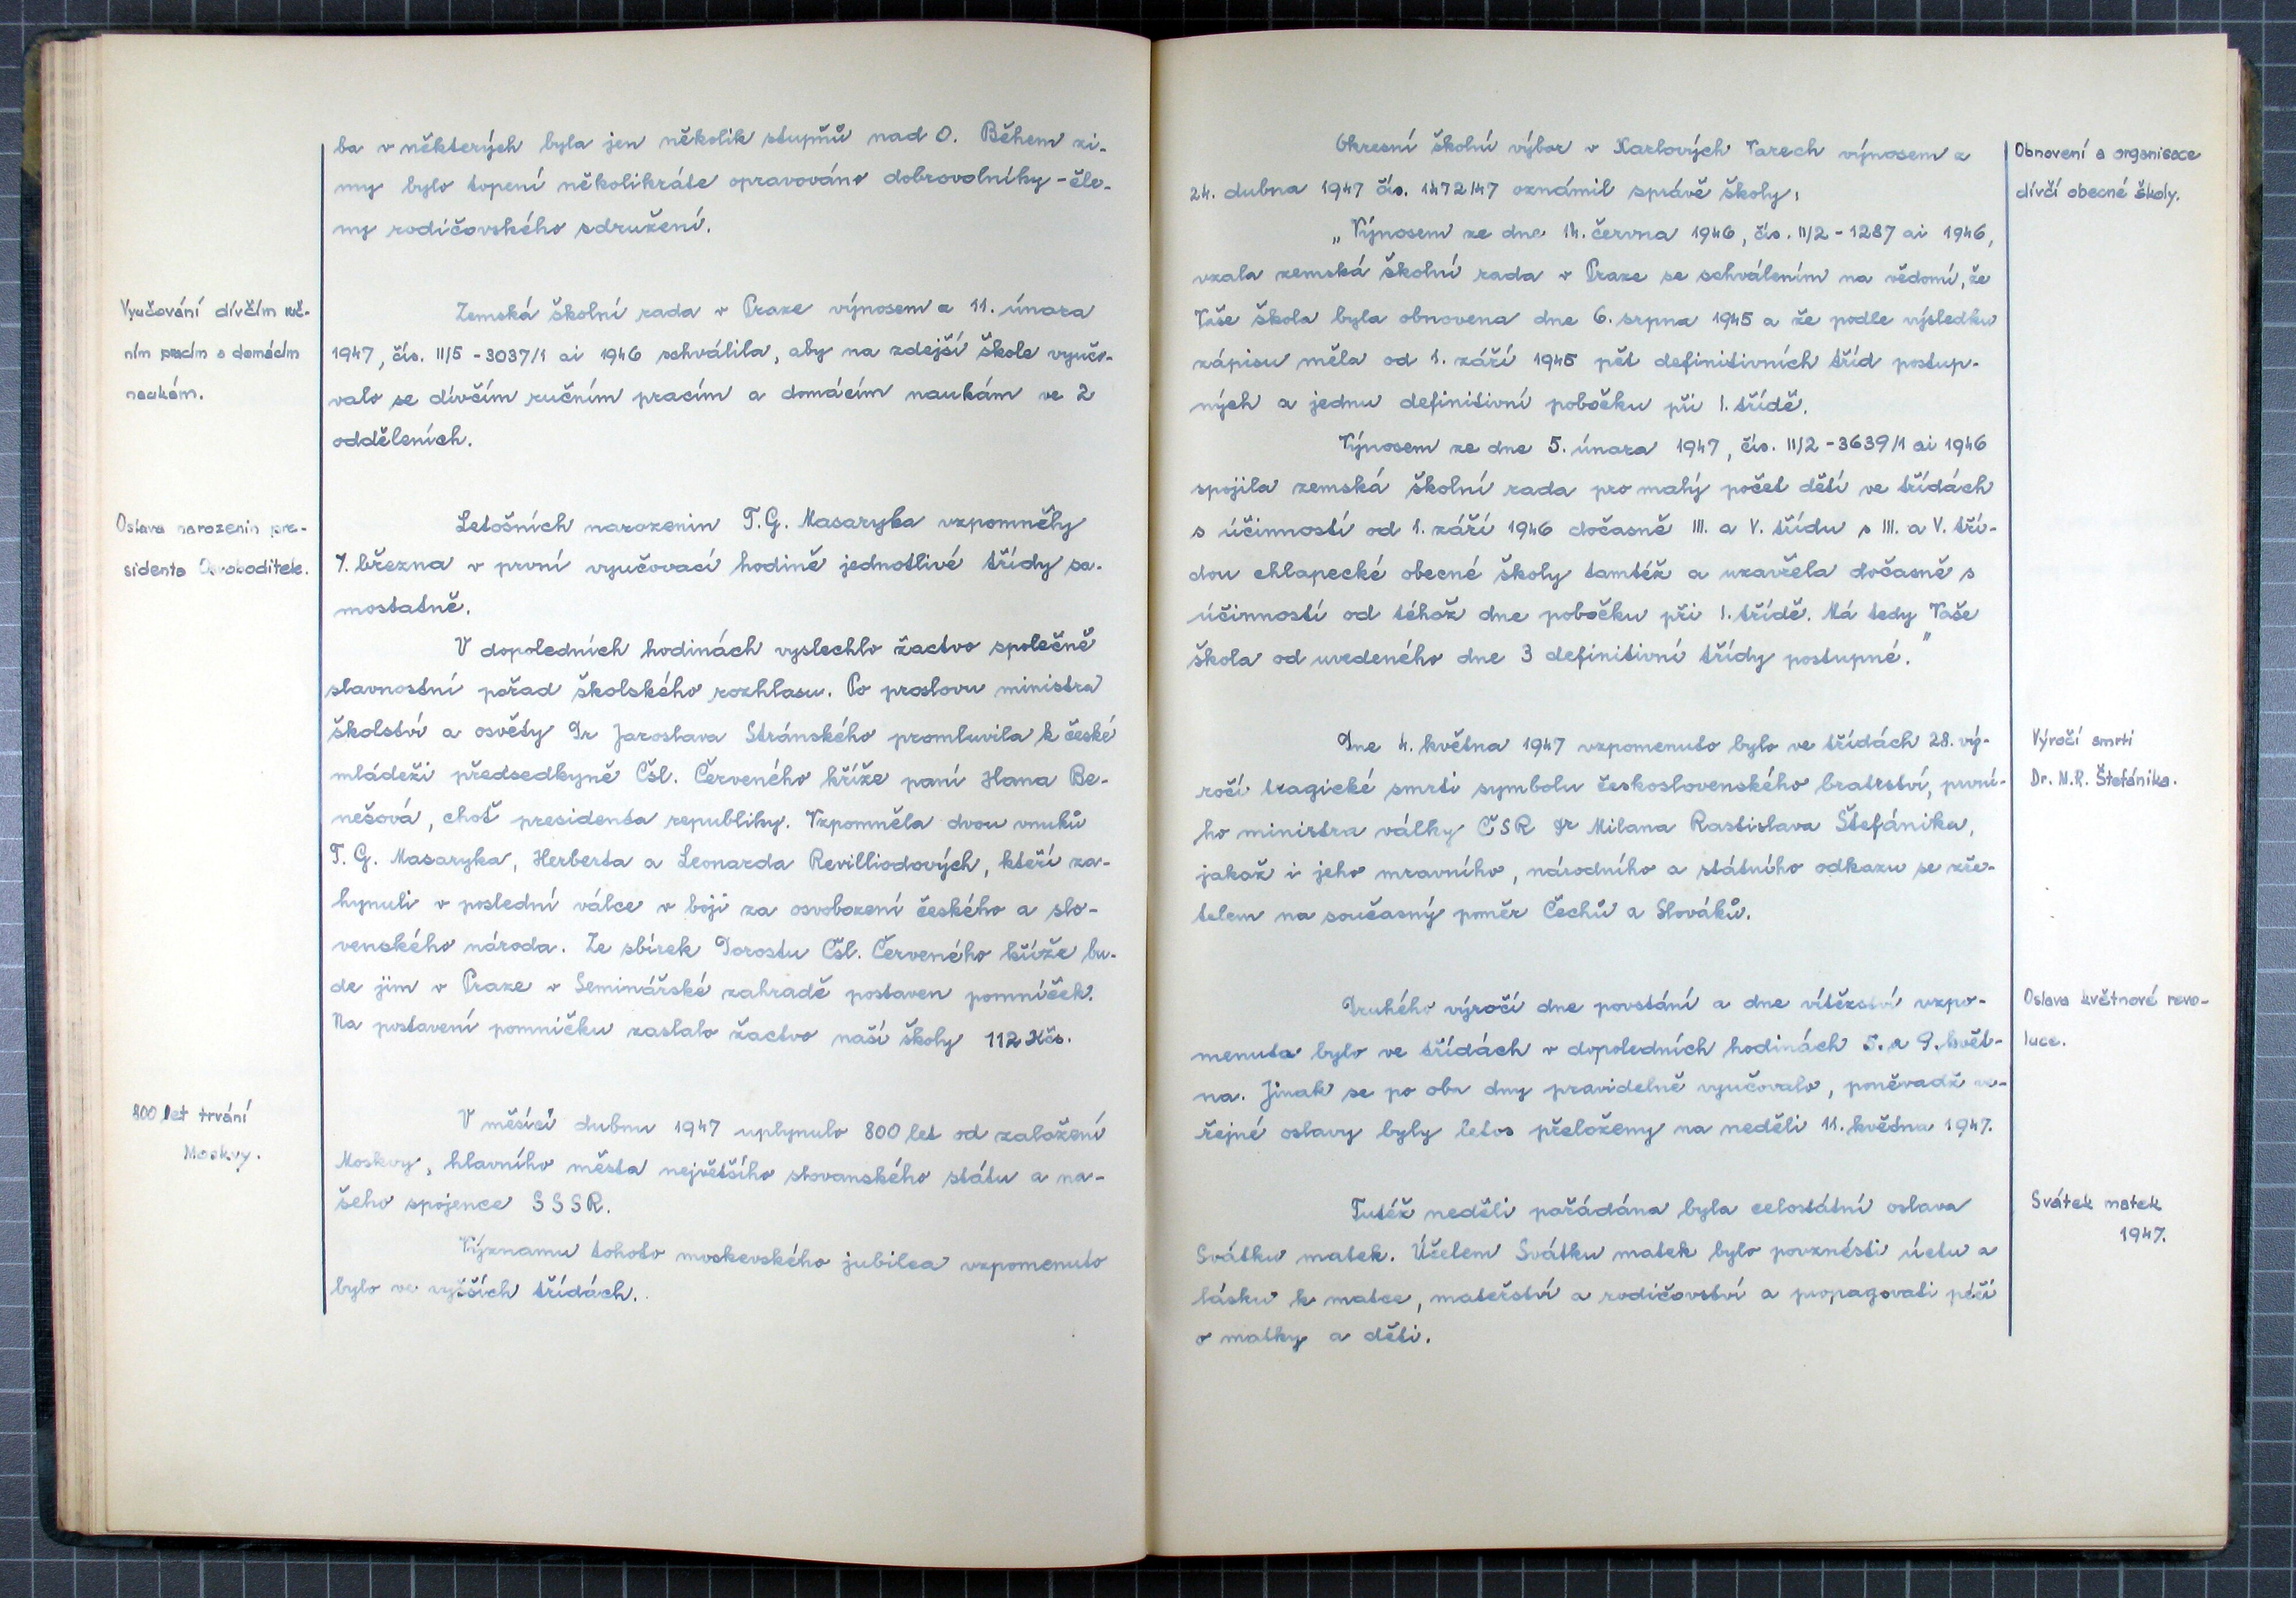 ba v některých byla jen několik stupňů nad 0. Během zi-
my bylo topení několikráte opravováno dobrovolníky - čle-
ny rodičovského sdružení.
Vyučování dívčím ruč-
ním pracím a domácím
naukám.
Zemská školní rada v Praze výnosem z 11. února
1947, čís. II/5 - 3037/1 ai 1946 schválila, aby na zdejší škole vyučo-
valo se dívčím ručním pracím a domácím naukám ve 2
odděleních.
Oslava narozenin pre-
sidenta Osvoboditele.
Letošních narozenin T. G. Masaryka vzpomněly
7. března v první vyučovací hodině jednotlivé třídy sa-
mostatně.
V dopoledních hodinách vyslechlo žactvo společně
slavnostní pořad školského rozhlasu. Po proslovu ministra
školství a osvěty Dr Jaroslava Stránského promluvila k české
mládeži předsedkyně Čsl. Červeného kříže paní Hana Be-
nešová, choť presidenta republiky. Vzpomněla dvou vnuků
T. G. Masaryka, Herberta a Leonarda Revilliodových, kteří za-
hynuli v poslední válce v boji za osvobození českého a slo-
venského národa. Ze sbírek Dorostu Čsl. Červeného kříže bu-
de jim v Praze v Seminářské zahradě postaven pomníček.
Na postavení pomníčku zaslalo žactvo naší školy 112 Kčs.
800 let trvání
Moskvy.
V měsíci dubnu 1947 uplynulo 800 let od založení
Moskvy, hlavního města největšího slovanského státu a na-
šeho spojence SSSR.
Významu tohoto moskevského jubilea vzpomenuto
bylo ve vyšších třídách.
Obnovení a organisace
dívčí obecné školy.
Okresní školní výbor v Karlových Varech výnosem z
24. dubna 1947 čís. 1472/47 oznámil správě školy:
„Výnosem ze dne 14. června 1946, čís. II/2 - 1287 ai 1946,
vzala zemská školní rada v Praze se schválením na vědomí, že
Vaše škola byla obnovena dne 6. srpna 1945 a že podle výsledku
zápisu měla od 1. září 1945 pět definitivních tříd postup-
ných a jednu definitivní pobočku při I. třídě.
Výnosem ze dne 5. února 1947, čís. II/2 - 3639/1 ai 1946
spojila zemská školní rada pro malý počet dětí ve třídách
s účinností od 1. září 1946 dočasně III. a V. třídu s III. a V. tří-
dou chlapecké obecné školy tamtéž a uzavřela dočasně s
účinností od téhož dne pobočku při I. třídě. Má tedy Vaše
škola od uvedeného dne 3 definitivní třídy postupné."
Výročí smrti
Dr. M. R. Štefánika.
Dne 4. května 1947 vzpomenuto bylo ve třídách 28. vý-
ročí tragické smrti symbolu československého bratrství, první-
ho ministra války ČSR Dr Milana Rastislava Štefánika,
jakož i jeho mravního, národního a státního odkazu se zře-
telem na současný poměr Čechů a Slováků.
Oslava květnové revo-
luce.
Druhého výročí dne povstání a dne vítězství vzpo-
menuta bylo ve třídách v dopoledních hodinách 5. a 9. květ-
na. Jinak se po oba dny pravidelně vyučovalo, poněvadž ve-
řejné oslavy byly letos přeloženy na neděli 11. května 1947.
Svátek matek
1947.
Tutéž neděli pořádána byla celostátní oslava
Svátku matek. Účelem Svátku matek bylo povznésti úctu a
lásku k matce, mateřství a rodičovství a propagovati péči
o matky a děti.